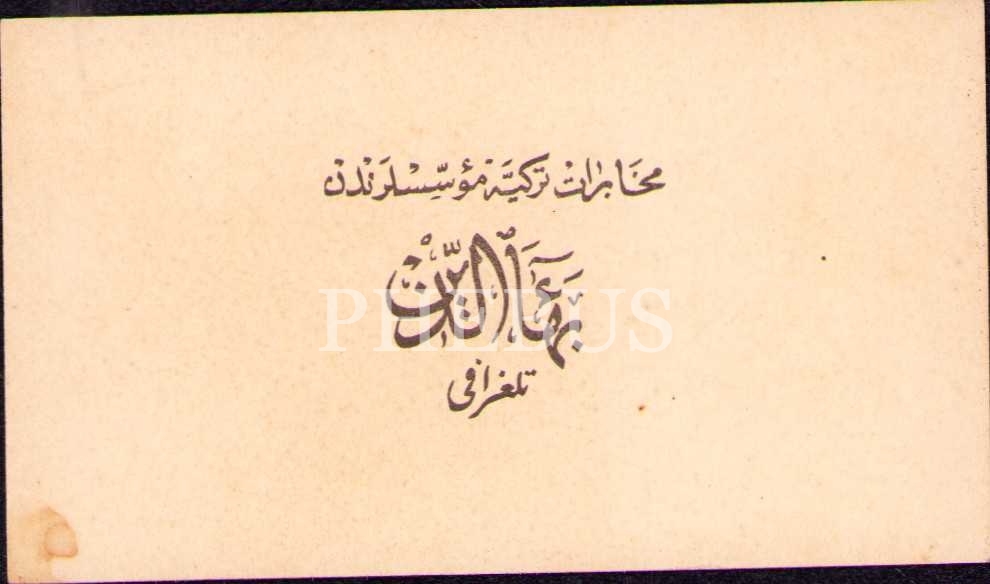 مخابرات تركيه مؤسسلرندن
بهاء الدين
تلغرافى
PHEBUS